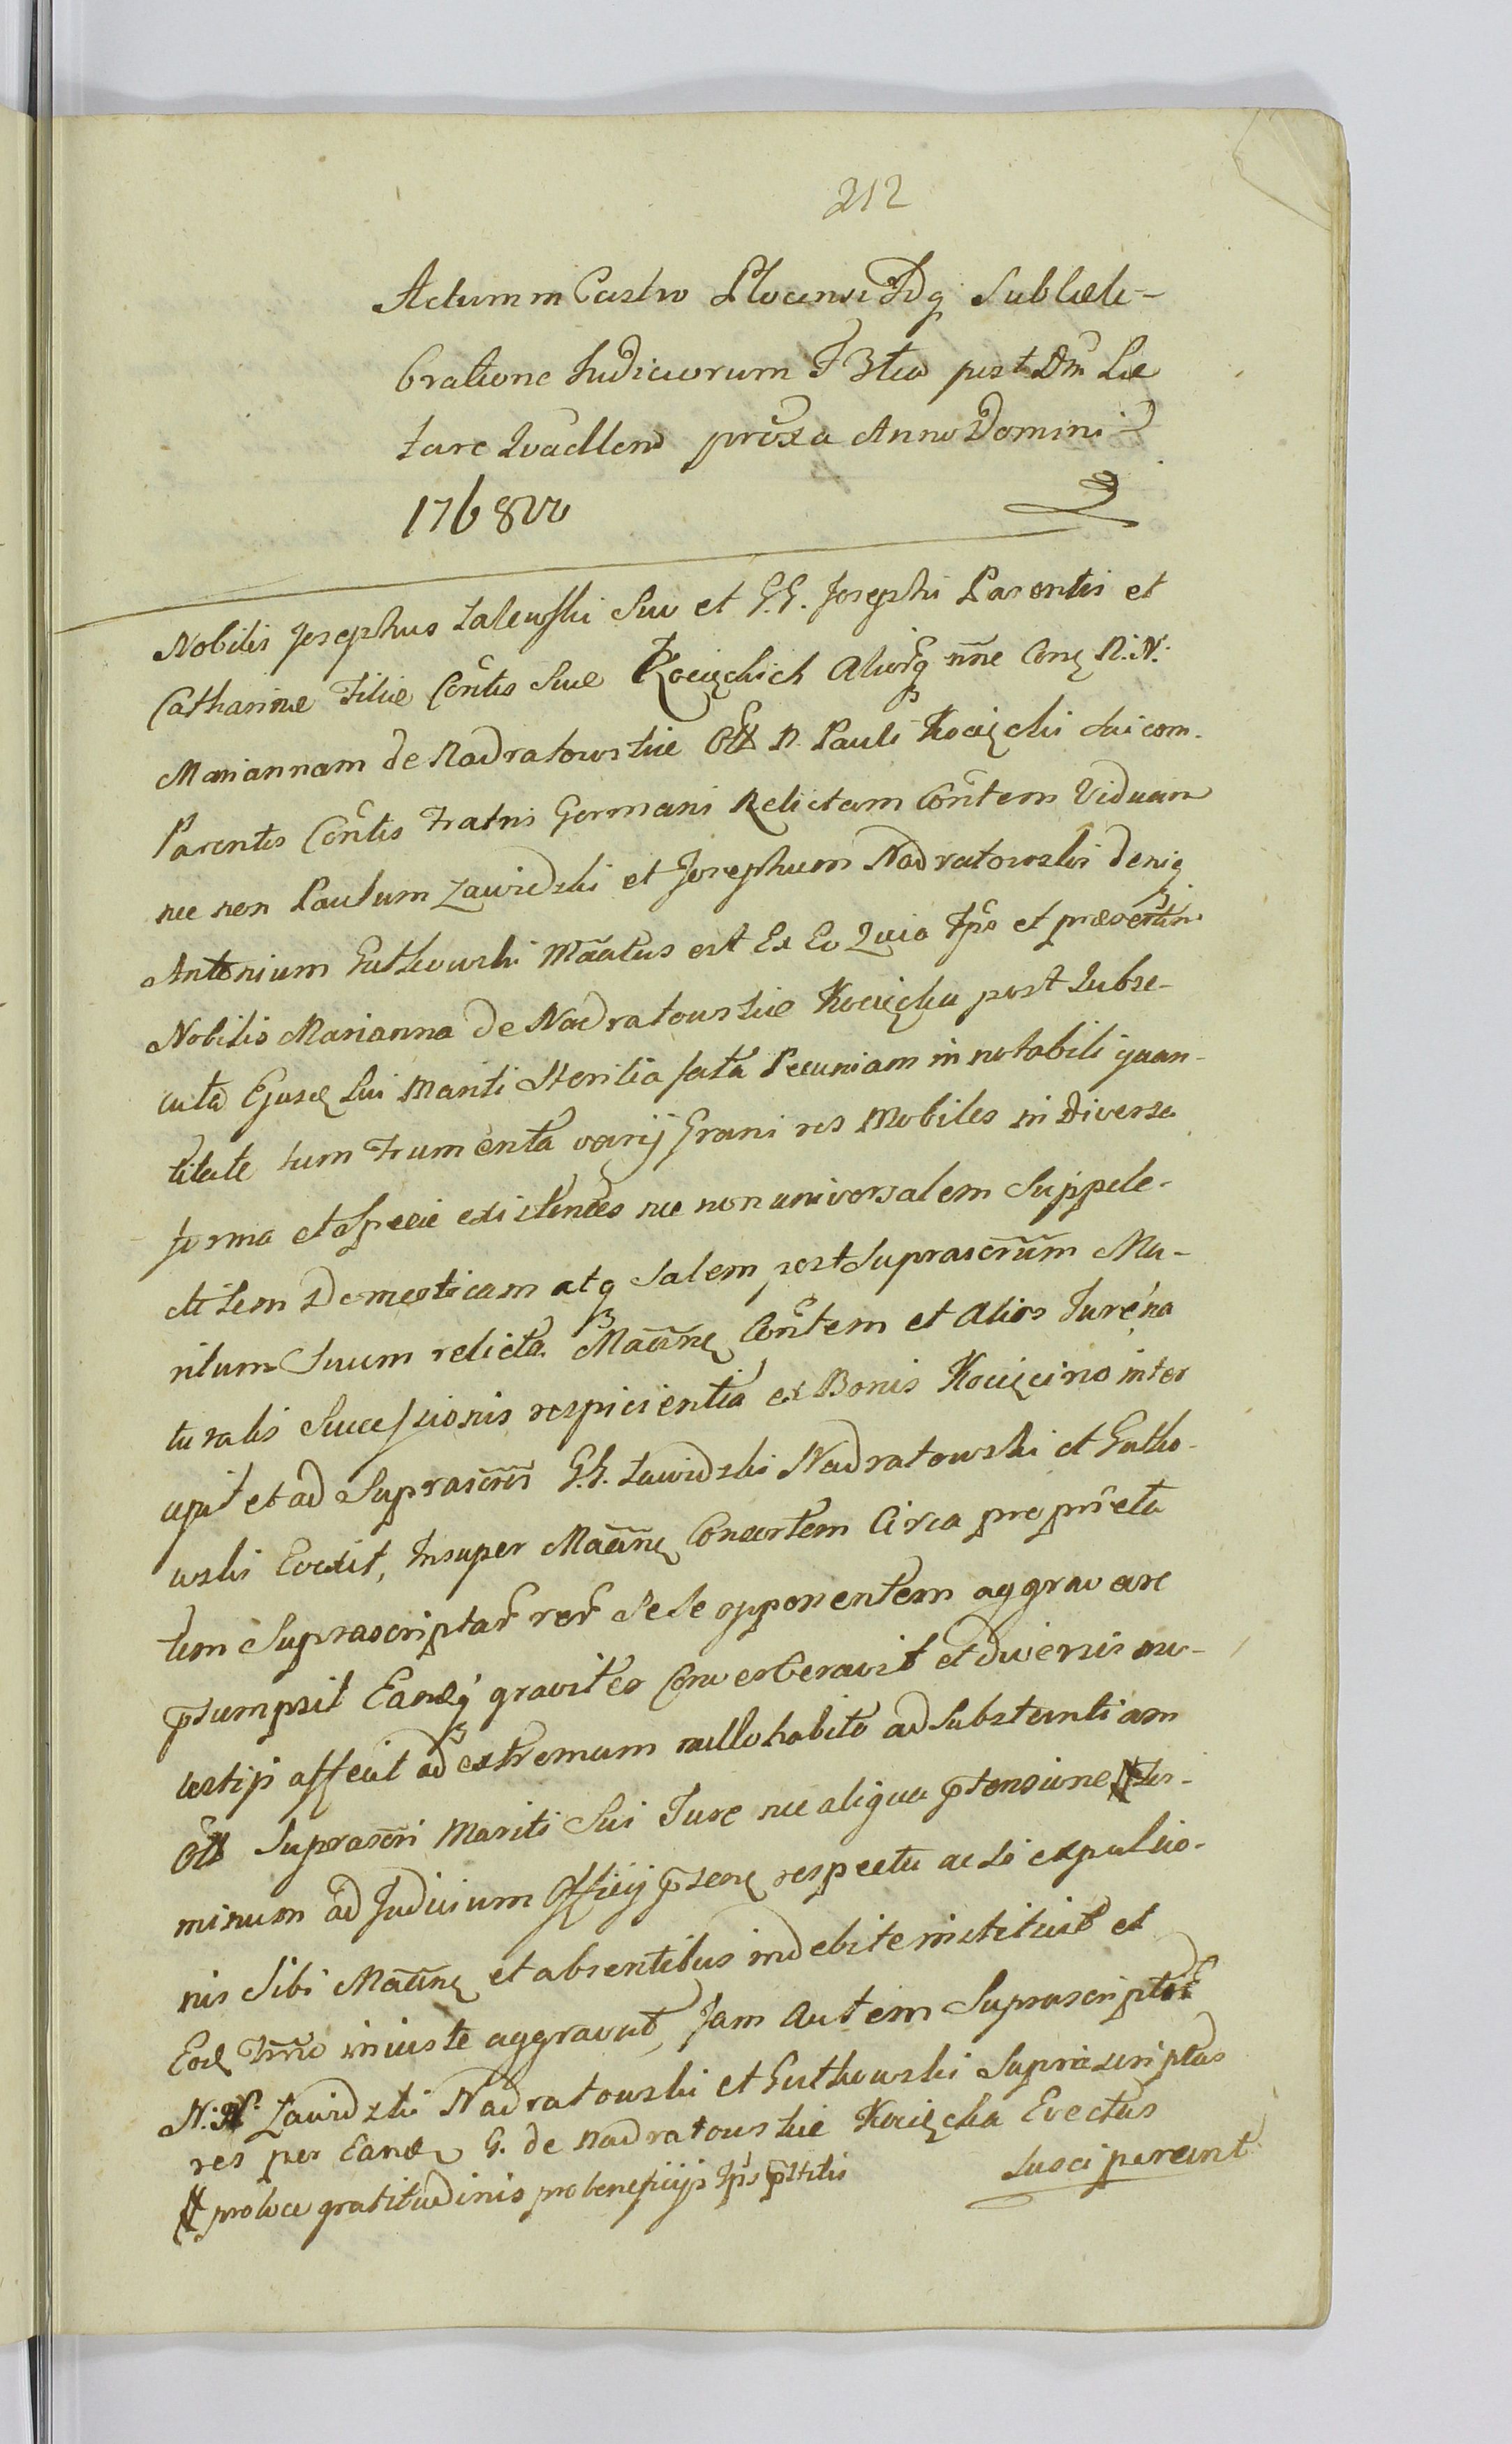 212
Actum in Castro Plocensi Fdg Sub Cele-
bratione Judiciorum F 3tia post Dm Læ
tare Quadlem proxa Anno Domini
1768vo
Nobilis Josephus Zalewski Suo et G.G. Josephi Parentis et
Catharinæ Filiæ Contis Suæ Kocięckich Aliorq nne Conq N.N.
Mariannam de Nadratowskie Olt N. Pauli Kocięcki dui com.
Parentis Contis Fratris Germani Relictam Contem Viduam
nec non Paulum Zawidzki et Josephum Nadratowski deniq
Antonium Gutkowski Maatus est Ex Eo Quia Ipo et præsertim
Nobilis Marianna de Nadratowskie Kocięcka post Subse-
cuta Ejusd Sui Mariti Sterilia fata Pecuniam in notabili quan-
titate tum Frumenta varij Grani res Mobiles in Diversa
forma et Specie existentes nec non universalem Suppele-
ctilem Domesticam atq Salem post Suprascrium Ma-
ritum Suum relicta Maane Contem et Alios Jure na
turalis Successionis respicientia ex Bonis Kocięcino inter
cepit et ad Suprascros G.G. Zawidzki Nadratowski et Gutko-
wski Evexit, Insuper Maane Consortem Circa proprieta
tem Suprascriptar rer Sese opponentem aggravare
psumpsit Eandq graviter Converberavit et diversis mo-
lestijs affecit ad extremum nullo habito ad Substantiam
Olt Suprascri Mariti Sui Jure nec aliqua ptensione Ter-
minum ad Judicium Officij psens respectu ac si expulsio-
nis Sibi Maane et absentibus indebite instituit et
Eod Tmno iniuste aggravat, Jam Autem Suprascripti
N.N. Zawidzki Nadratowski et Gutkowski Suprascriptas
res per Eandem G. de Nadratowskie Kocięcka Evectas
pro loco gratitudinis pro beneficijs Ips pstitis
Susciperunt